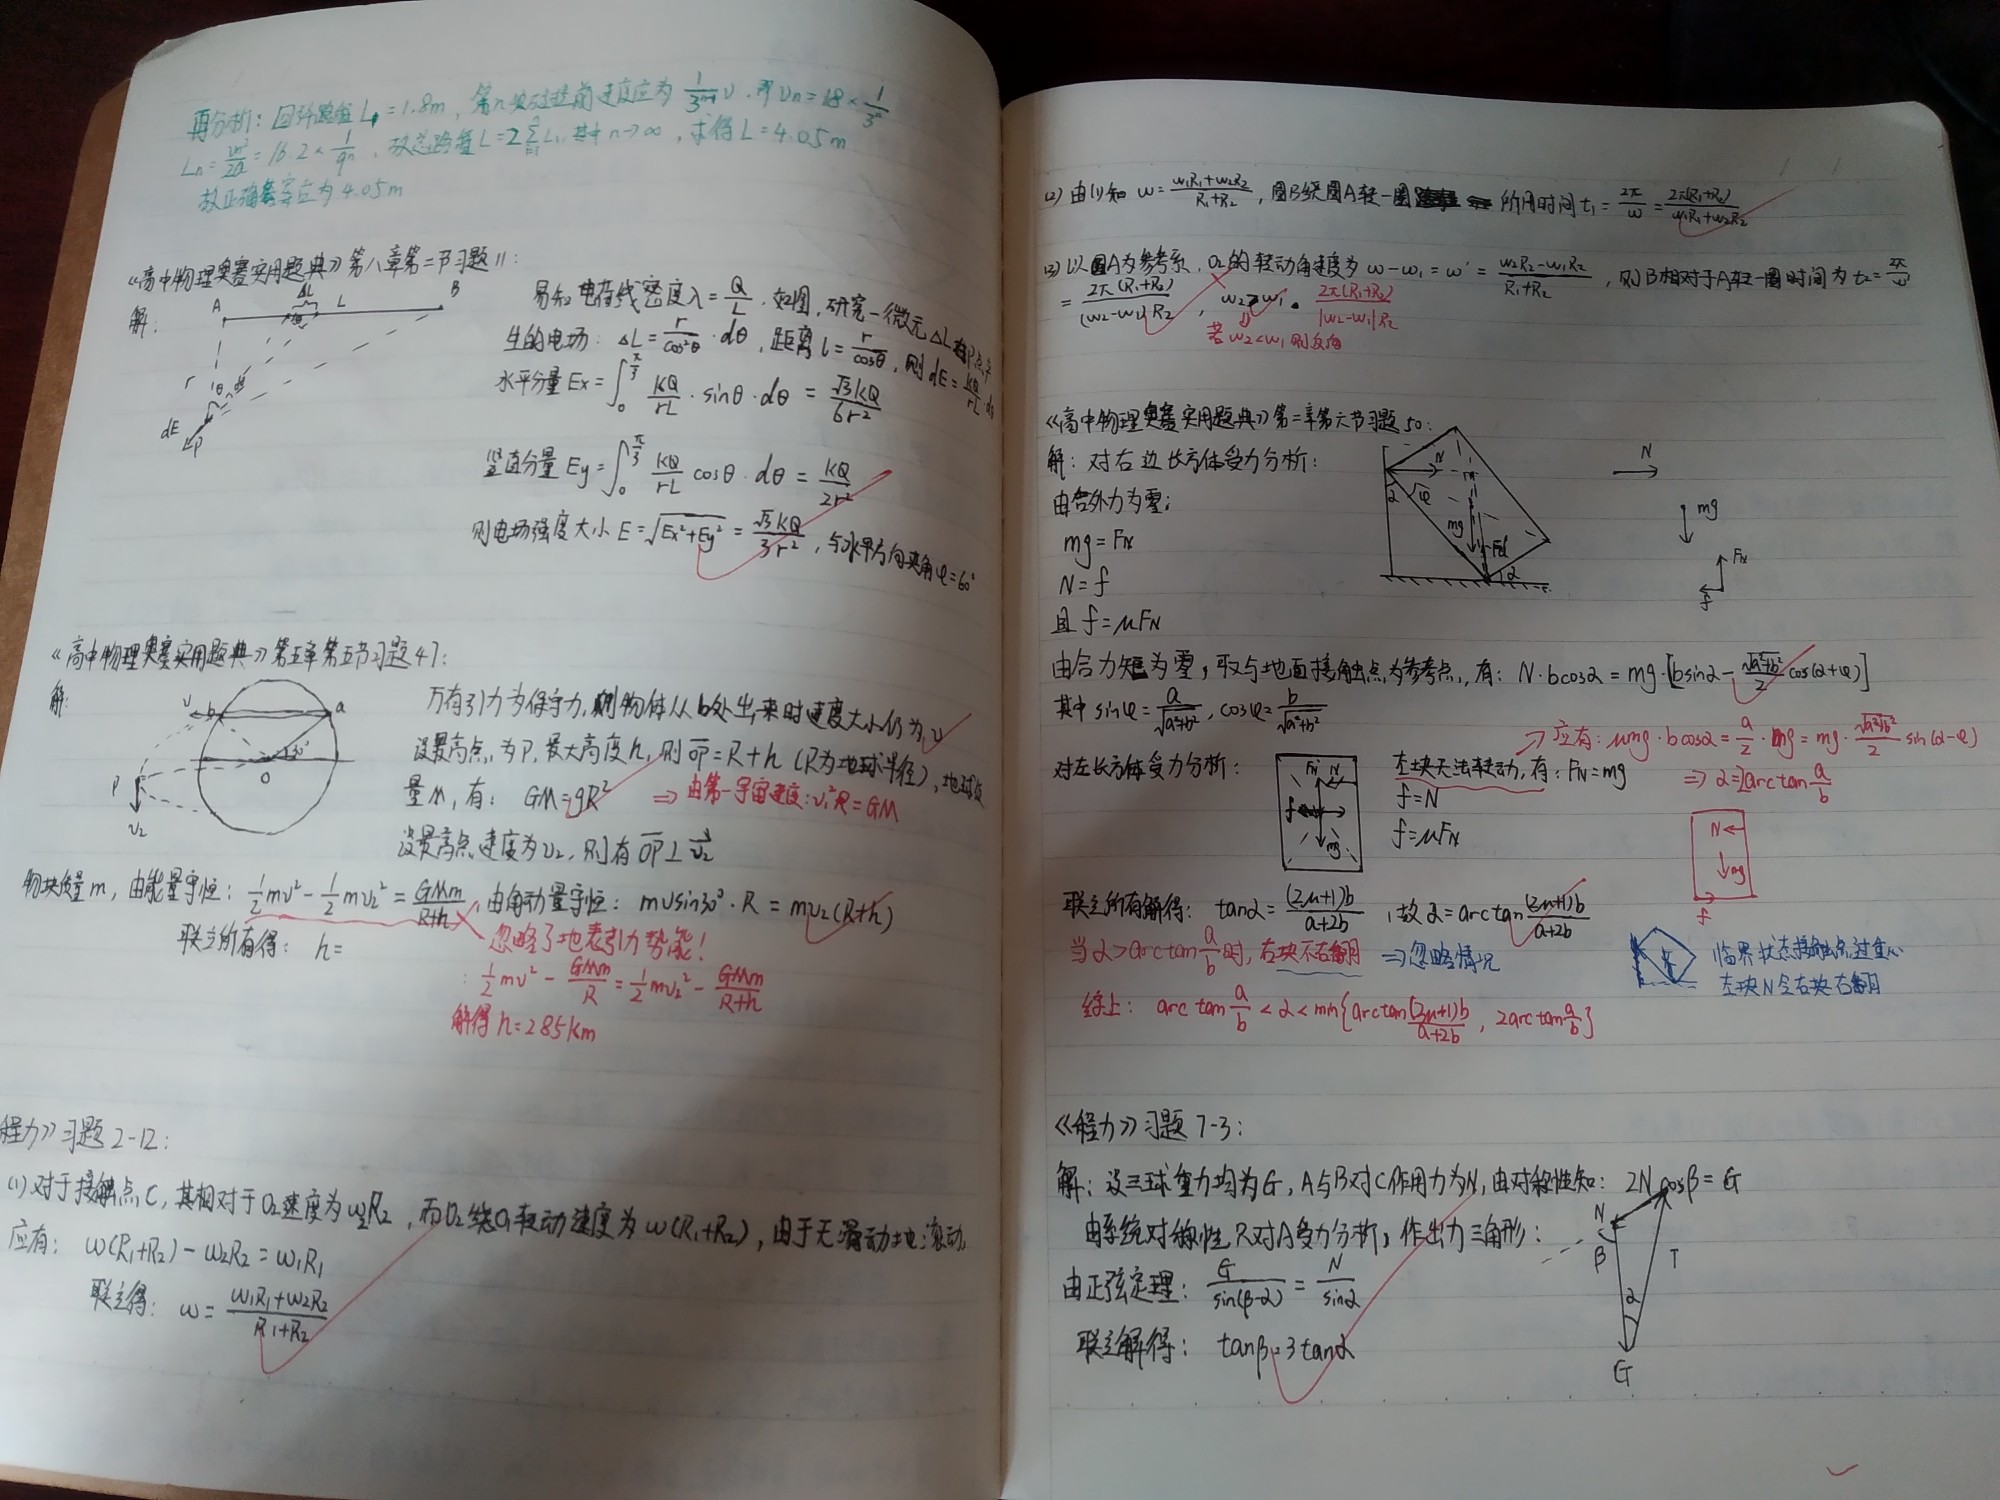 再分析：回环路径 L₁ = 1.8m，第n次碰撞前速度应为 1/3ⁿ⁻¹ v，即 vn = 18 × 1/3ⁿ
Ln = vn²/2a = 16.2 × 1/9ⁿ，故总路程 L = 2ΣLi，其中 n→∞，求得 L = 4.05m
故正确答案应为 4.05m
《高中物理奥赛实用题典》第八章第二节习题11：
解：
A ΔL L B
r θ dθ
dE P
易知电荷线密度 λ = Q/L，如图，研究一微元 ΔL 在P点产
生的电场：ΔL = r/cos²θ · dθ，距离 l = r/cosθ，则 dE = kQ/rL · dθ
水平分量 Ex = ∫₀^(π/3) kQ/rL · sinθ · dθ = √3kQ/6r²
竖直分量 Ey = ∫₀^(π/3) kQ/rL cosθ · dθ = kQ/2r²
则电场强度大小 E = √(Ex²+Ey²) = √3kQ/3r²，与水平方向夹角 φ = 60°
《高中物理奥赛实用题典》第五章第五节习题47：
解：
v b a
30°
O
P
v₂
万有引力为保守力，则物体从b处出来时速度大小仍为v
设最高点为P，最大高度h，则 OP = R+h（R为地球半径），地球质
量M，有：GM = gR² ⇒ 由第一宇宙速度：v₁²R = GM
设最高点速度为v₂，则有 OP⊥v₂
物块质量m，由能量守恒：½mv² - ½mv₂² = GMm/(R+h)，由角动量守恒：mvsin30°·R = mv₂(R+h)
联立所有得：h =
忽略了地表引力势能！
：½mv² - GMm/R = ½mv₂² - GMm/(R+h)
解得 h = 285km
程力》习题 2-12：
(1) 对于接触点C，其相对于O₂速度为ω₂R₂，而O₂绕O₁转动速度为ω(R₁+R₂)，由于无滑动地滚动，
应有：ω(R₁+R₂) - ω₂R₂ = ω₁R₁
联立得：ω = (ω₁R₁+ω₂R₂)/(R₁+R₂)
(2) 由(1)知 ω = (ω₁R₁+ω₂R₂)/(R₁+R₂)，圆B绕圆A转一圈 所用时间 t₁ = 2π/ω = 2π(R₁+R₂)/(ω₁R₁+ω₂R₂)
(3) 以圆A为参考系，O₂的转动角速度为 ω - ω₁ = ω' = (ω₂R₂-ω₁R₂)/(R₁+R₂)，则B相对于A转一圈时间为 t₂ = 2π/ω'
= 2π(R₁+R₂)/(ω₂-ω₁)R₂，ω₂>ω₁。 2π(R₁+R₂)/|ω₂-ω₁|R₂
若ω₂<ω₁则反向
《高中物理奥赛实用题典》第二章第六节习题50：
解：对右边长方体受力分析：
由合外力为零：
mg = FN
N = f
且 f = μFN
N φ α mg FN f α
N
mg
FN
f
由合力矩为零，取与地面接触点为参考点，有：N·bcosα = mg·[bsinα - √(a²+b²)/2 cos(α+φ)]
其中 sinφ = a/√(a²+b²)，cosφ = b/√(a²+b²)
→ 应有：μmg·bcosα = a/2·mg = mg·√(a²+b²)/2 sin(α-φ)
⇒ α = 2arctan a/b
对左长方体受力分析：
FN N f mg
左块无法转动，有：FN = mg
f = N
f = μFN
N mg f
联立所有解得：tanα = (2μ+1)b/(a+2b)，故 α = arctan (2μ+1)b/(a+2b)
当 α > arctan a/b 时，右块不右翻 ⇒ 忽略情况
临界状态接触点过重心
左块N令右块右翻
综上：arctan a/b < α < min{arctan (2μ+1)b/(a+2b)，2arctan a/b}
《程力》习题 7-3：
解：设三球重力均为G，A与B对C作用力为N，由对称性知：2Ncosβ = G
由系统对称性，只对A受力分析，作出力三角形：
由正弦定理：G/sin(β-α) = N/sinα
联立解得：tanβ = 3tanα
N
β T
α
G